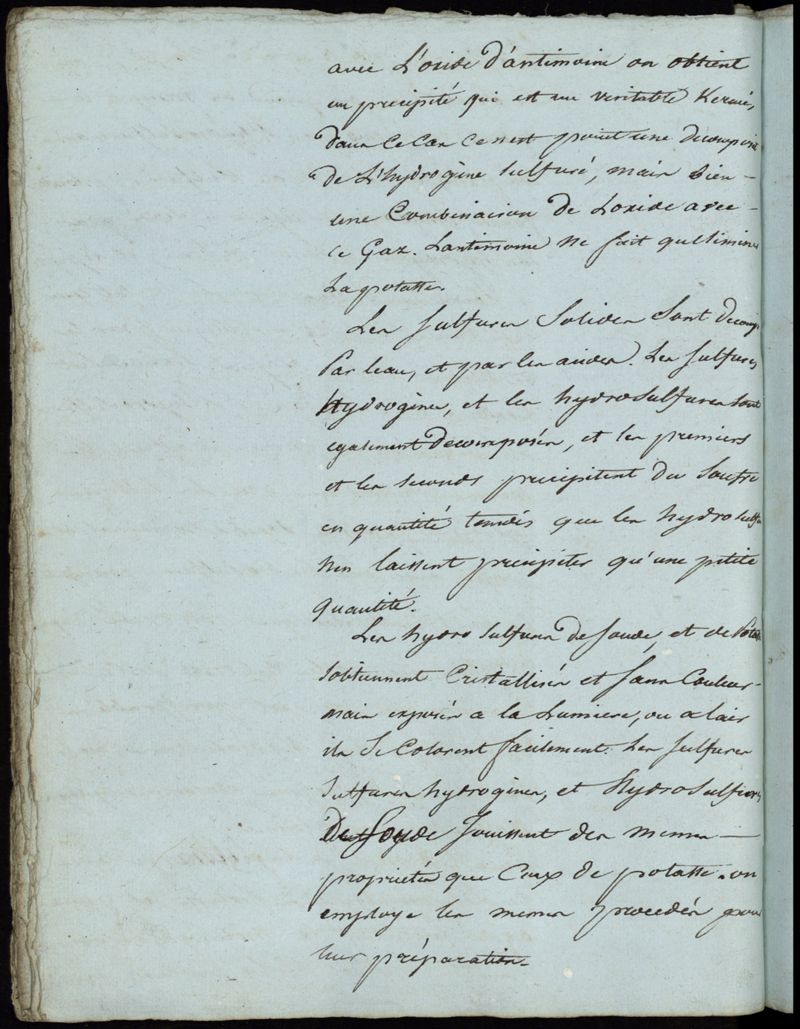 avec L'oxide D'antimoine on obtient
un precipité qui est un veritable Kermés,
dans ce cas ce nest point une decomposi
de L'hydrogène sulfuré, mais bien –
une Combinaison de Loxide avec –
ce Gaz. Lantimoine ne fait qu'elimine
La potasse.
Les sulfures Solides Sont decomp
Par leau, et par les acides. Les sulfures
Hydrogenes, et les hydrosulfures sont
egalement Decomposés, et les premiers
et les seconds precipitent du Soufre
en quantité tandis que les hydrosulf
nen laissent precipiter qu'une petite
quantité.
Les hydro sulfures de soude, et de Potas
sobtiennent Cristallisés et sans Couleur –
mais exposés a la Lumiere, ou a lair
ils se Colorent facilement. Les sulfures
sulfures hydrogenes, et Hydrosulfures
De Soude Jouissent des memes –
proprietés que Ceux de potasse. on
employe les memes procedés pour
leur préparation.